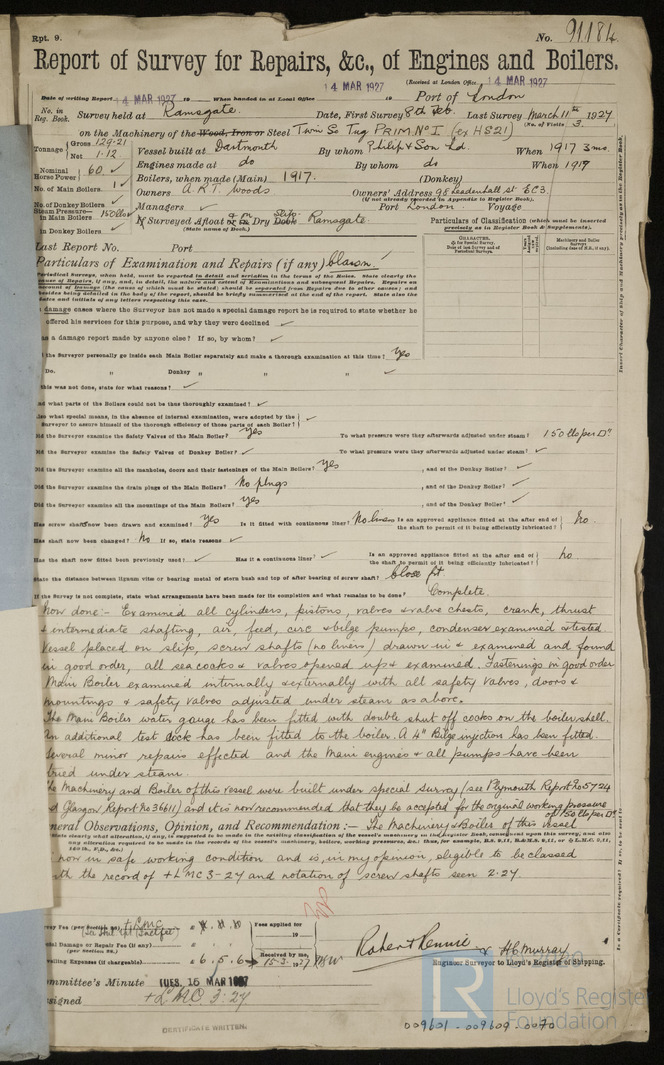 Rpt. 9.
No. 91184
Report of Survey for Repairs, &c., of Engines and Boilers.
(Received at London Office 14 MAR 1927
14 MAR 1927
Date of writing Report 4 MAR 1927 19 When handed in at Local Office 19 Port of London
No. in Reg. Book. Survey held at Ramsgate. Date, First Survey 8th Feb Last Survey March 11th 1927
(No. of Visits 3.
on the Machinery of the Wood, Iron or Steel Twin Sc Tug PRIM. No I (ex HS21)
Tonnage Gross 129.21
Net 1.12
Vessel built at Dartmouth By whom Philip & Son Ld. When 1917 3mo.
Nominal Horse Power 60
Engines made at do By whom do When 1917
No. of Main Boilers 1
Boilers, when made (Main) 1917. (Donkey)
No. of Donkey Boilers
Owners A.R.T. Woods Owners' Address 98 Leadenhall St EC3.
(if not already recorded in Appendix to Register Book).
Steam Pressure in Main Boilers 150 lbs
Managers Port London Voyage
in Donkey Boilers
If Surveyed Afloat or in Dry Dock Slip Ramsgate.
(State name of Dock.)
Particulars of Classification (which must be inserted precisely as in Register Book & Supplements).
Last Report No. Port
Particulars of Examination and Repairs (if any) Classn.
Periodical Surveys, when held, must be reported in detail and seriatim in the terms of the Rules. State clearly the
damage cases where the Surveyor has not made a special damage report he is required to state whether he
offered his services for this purpose, and why they were declined
as a damage report made by anyone else? If so, by whom?
d the Surveyor personally go inside each Main Boiler separately and make a thorough examination at this time? Yes
Do. " Donkey " "
this was not done, state for what reasons?
nd what parts of the Boilers could not be thus thoroughly examined?
lso what special means, in the absence of internal examination, were adopted by the
Surveyor to assure himself of the thorough efficiency of those parts of each Boiler?
Did the Surveyor examine the Safety Valves of the Main Boiler? Yes To what pressure were they afterwards adjusted under steam? 150 lbs per □"
Did the Surveyor examine the Safety Valves of Donkey Boiler? To what pressure were they afterwards adjusted under steam?
Did the Surveyor examine all the manholes, doors and their fastenings of the Main Boilers? Yes , and of the Donkey Boiler?
Did the Surveyor examine the drain plugs of the Main Boilers? No plugs , and of the Donkey Boiler?
Did the Surveyor examine all the mountings of the Main Boilers? Yes , and of the Donkey Boiler?
Has screw shaft now been drawn and examined? Yes Is it fitted with continuous liner? No liners Is an approved appliance fitted at the after end of the shaft to permit of it being efficiently lubricated? No.
Has shaft now been changed? No If so, state reasons
Has the shaft now fitted been previously used? Has it a continuous liner? Is an approved appliance fitted at the after end of the shaft to permit of it being efficiently lubricated? No.
State the distance between lignum vitæ or bearing metal of stern bush and top of after bearing of screw shaft? Close fit
If the Survey is not complete, state what arrangements have been made for its completion and what remains to be done? Complete.
Now done:- Examined all cylinders, pistons, valves & valve chests, crank, thrust
& intermediate shafting, air, feed, circ & bilge pumps, condenser examined & tested
Vessel placed on slip, screw shafts (no liners) drawn in & examined and found
in good order, all sea cocks & valves opened up & examined. Fastenings in good order
Main Boiler examined internally & externally with all safety valves, doors &
mountings & safety valves adjusted under steam as above.
The Main Boiler water gauge has been fitted with double shut off cocks on the boiler shell.
An additional test cock has been fitted to the boiler. A 4" Bilge injection has been fitted.
Several minor repairs effected and the Main engines & all pumps have been
tried under steam.
The Machinery and Boiler of this vessel were built under special survey (see Plymouth Report No 5724
and Glasgow Report No 36611) and it is now recommended that they be accepted for the original working pressure
of 150 lbs per □"
neral Observations, Opinion, and Recommendation:— The Machinery & Boiler of this vessel
now in safe working condition and is, in my opinion, eligible to be classed
with the record of +LMC 3-27 and notation of screw shafts seen 2.27.
vey Fee (per Section 29) +LMC
Fees applied for
19
ecial Damage or Repair Fee (if any)
(per Section 29.)
velling Expenses (if chargeable) £ 6. 5. 6
Received by me,
15.3.1927
Robert Rennie & H.C. Murray
Engineer Surveyor to Lloyd's Register of Shipping.
ommittee's Minute TUES. 15 MAR 1927
ssigned +LMC 3.27
CERTIFICATE WRITTEN.
LR
Lloyd's Register
Foundation
009601-009609-0070